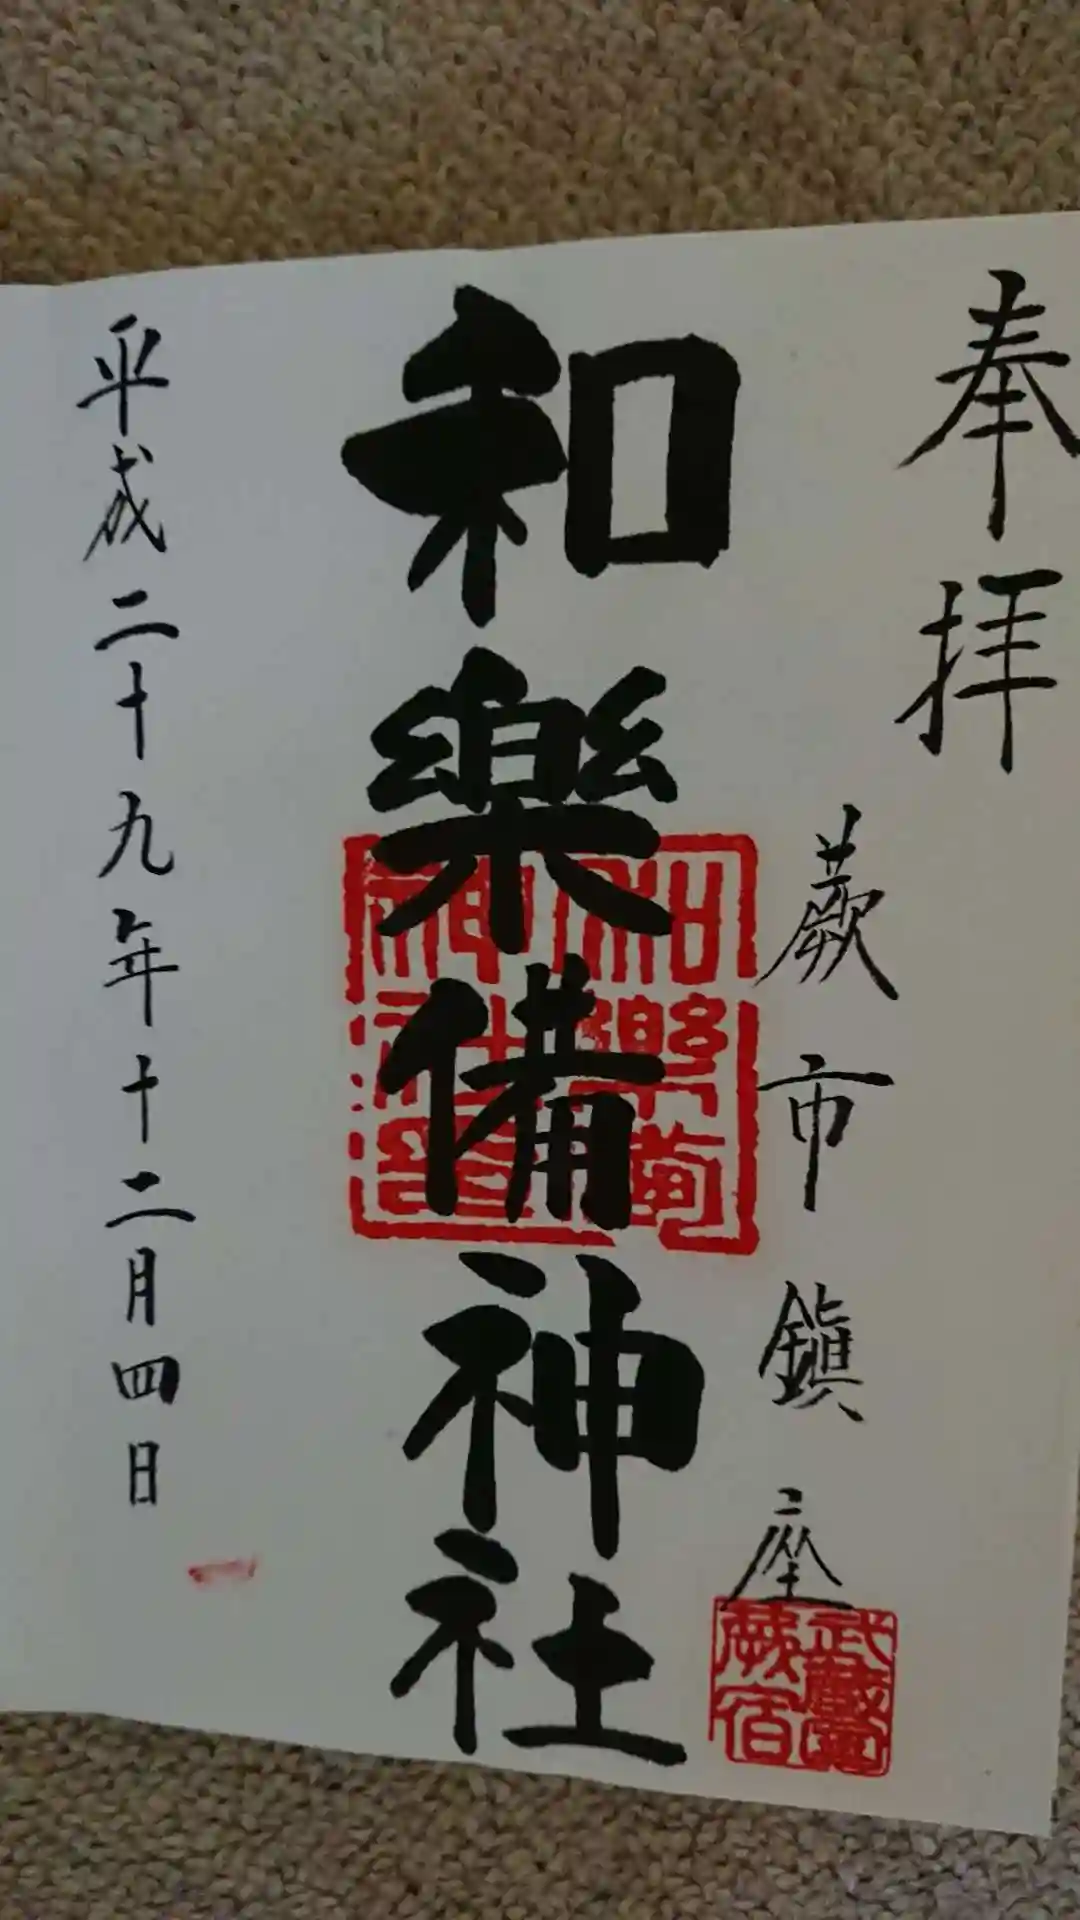 奉拝
蕨市鎮座
武蔵國
蕨宿
和樂備神社
和樂備
神社
平成二十九年十二月四日